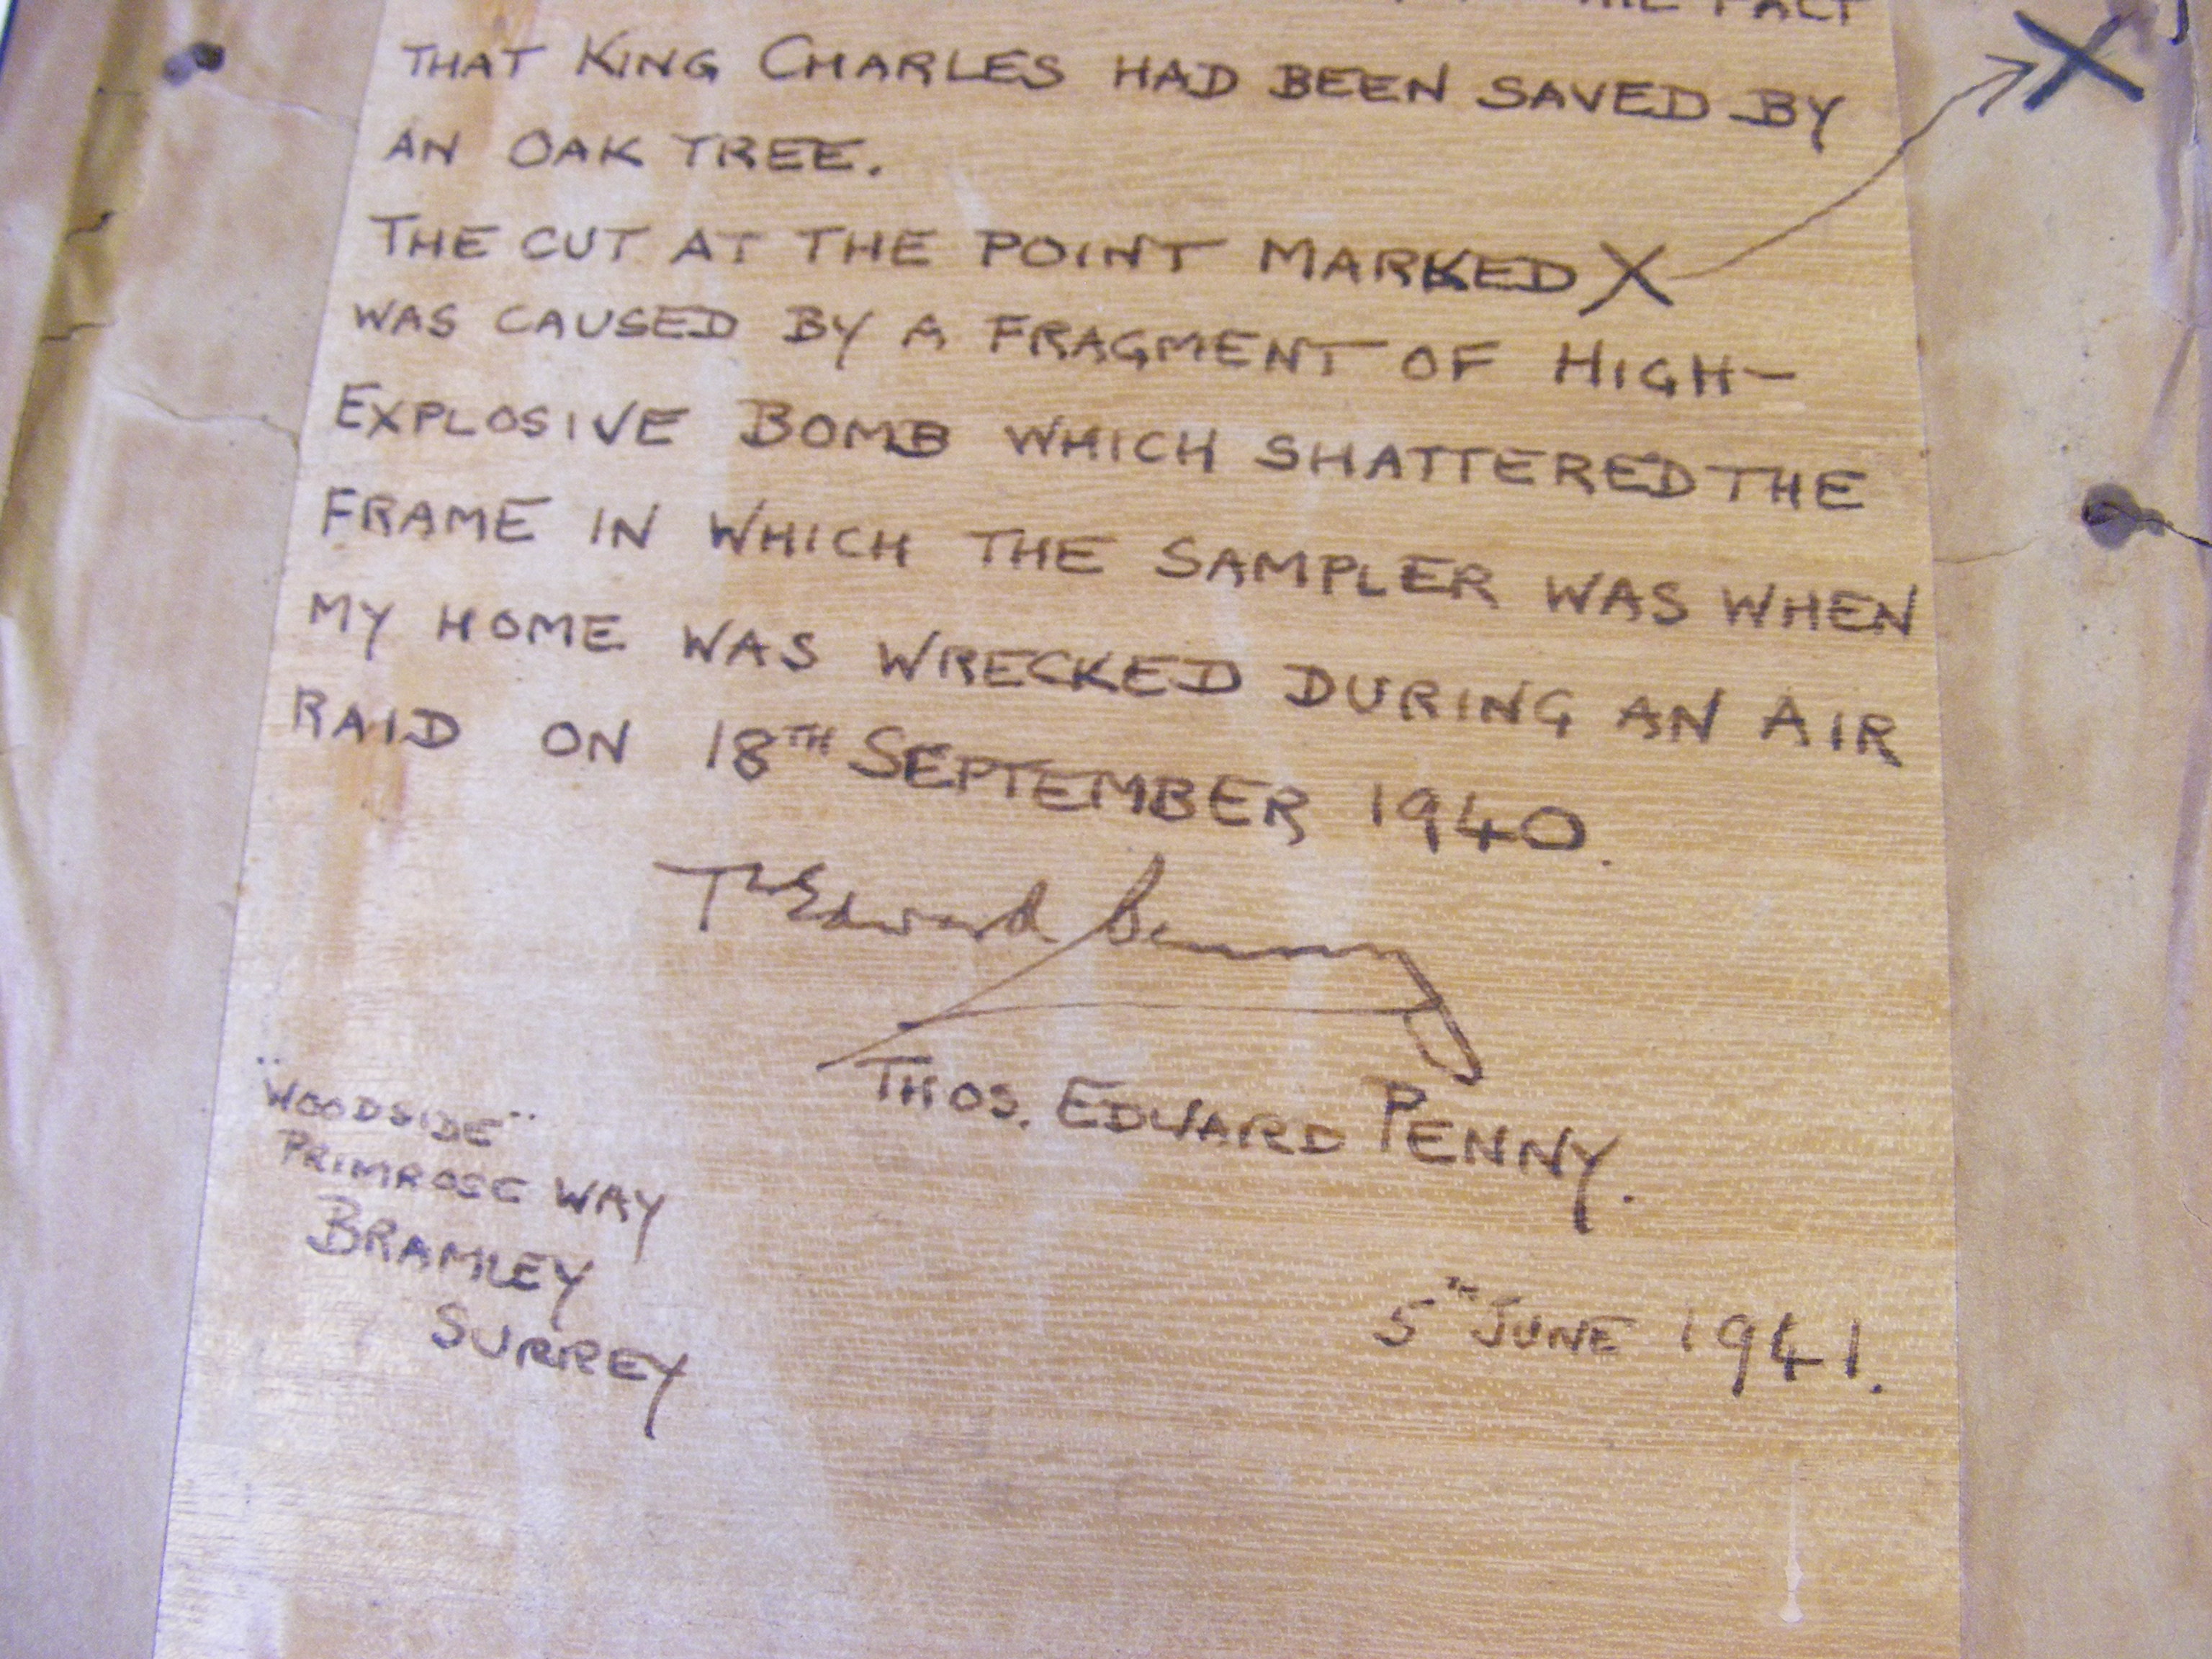 THE FACT
THAT KING CHARLES HAD BEEN SAVED BY
AN OAK TREE.
THE CUT AT THE POINT MARKED X
WAS CAUSED BY A FRAGMENT OF HIGH-
EXPLOSIVE BOMB WHICH SHATTERED THE
FRAME IN WHICH THE SAMPLER WAS WHEN
MY HOME WAS WRECKED DURING AN AIR
RAID ON 18TH SEPTEMBER 1940.
Thos Edward Penny
THOS. EDWARD PENNY.
"WOODSIDE"
PRIMROSE WAY
BRAMLEY
SURREY
5TH JUNE 1941.
X